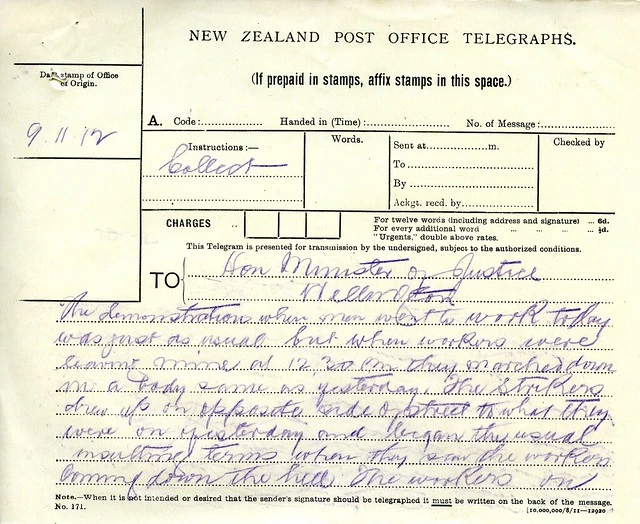 NEW ZEALAND POST OFFICE TELEGRAPHS.
(If prepaid in stamps, affix stamps in this space.)
Date stamp of Office
of Origin.
9.11.12
A. Code: Handed in (Time): No. of Message:
Instructions:—
Collect
Words.
Sent at m.
To
By
Ackgt. recd. by
Checked by
CHARGES
For twelve words (including address and signature) ... 6d.
For every additional word ... ½d.
"Urgents," double above rates.
This Telegram is presented for transmission by the undersigned, subject to the authorized conditions.
TO Hon Minister of Justice
Wellington
The demonstrations when men went to work today
was just as usual but when workers were
leaving mine at 12,30 pm they marched down
in a body same as yesterday. The Strikers
drew up on opposite side of street to what they
were on yesterday and began the usual
insulting terms when they saw the workers
coming down the hill The workers on
Note.—When it is not intended or desired that the sender's signature should be telegraphed it must be written on the back of the message.
No. 171.
[10,000,000/8/11—12920